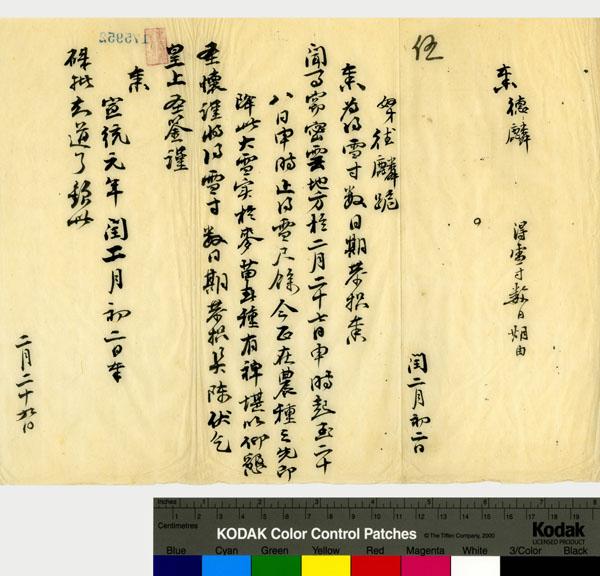 奏 德麟
得雪寸數日期由
閏二月初二日
伍
奴才德麟跪
奏為得雪寸數日期恭摺奏
聞事竊密雲地方於二月二十七日申時起至二十
八日申時止得雪尺餘今正在農種之先即
降此大雪實於麥苗五種有裨堪以仰慰
聖懷謹將得雪寸數日期恭摺具陳伏乞
皇上聖鑒謹
奏
宣統元年閏二月初二日奉
硃批知道了欽此
二月二十九日
175952
Inches 1 2 3 4 5 6 7 8
Centimetres 1 2 3 4 5 6 7 8 9 10 11 12 13 14 15 16 17 18 19
KODAK Color Control Patches © The Tiffen Company, 2000 Kodak
LICENSED PRODUCT
Blue Cyan Green Yellow Red Magenta White 3/Color Black